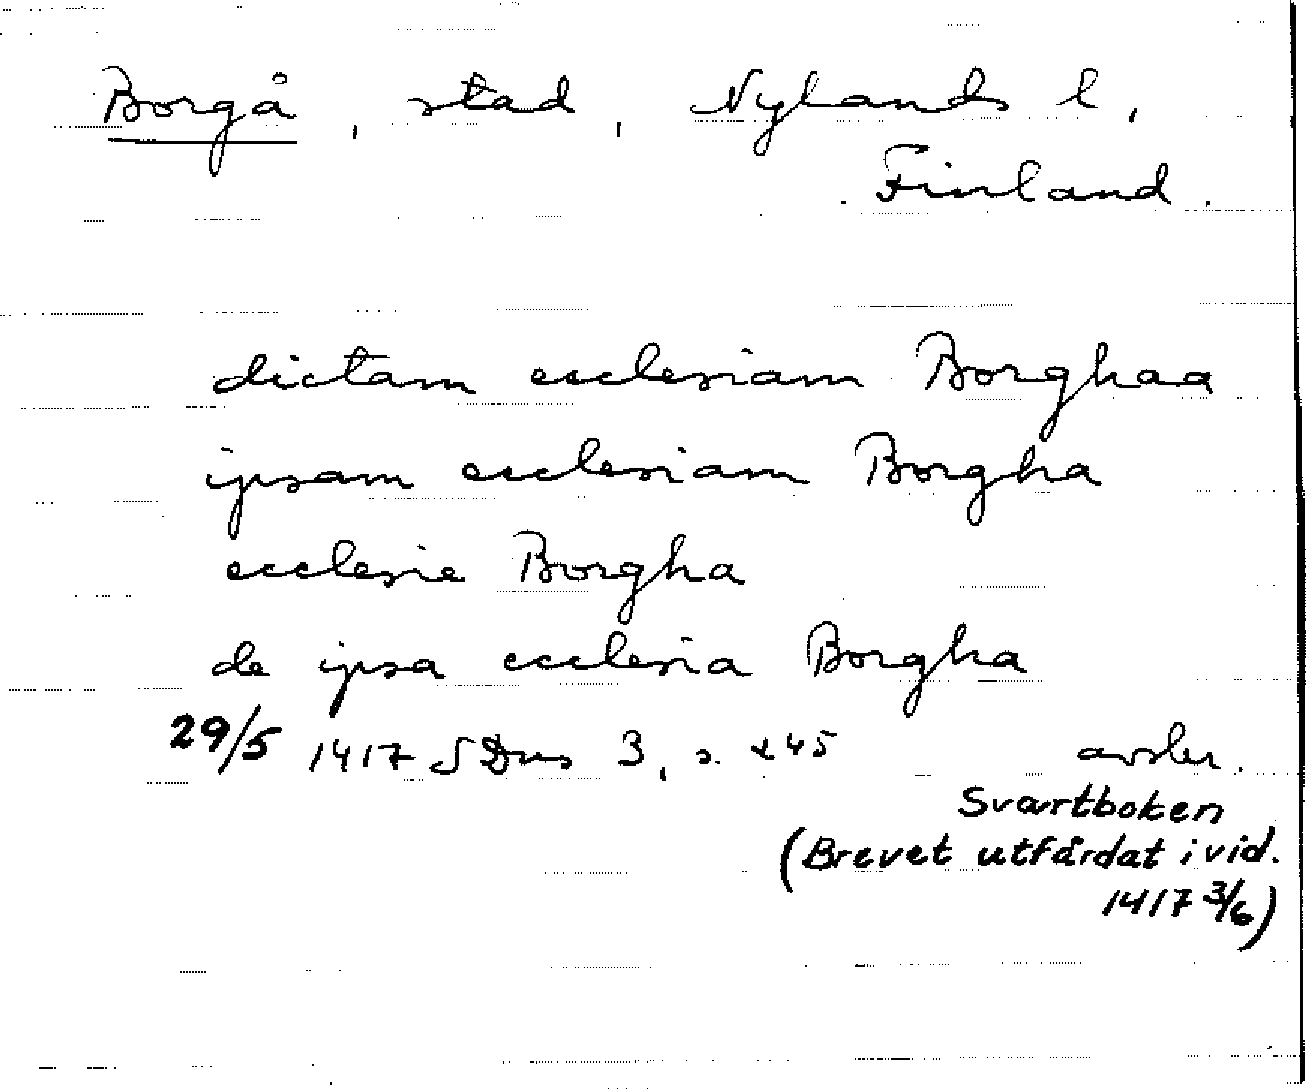 Borgå, stad, Nylands l,
Finland.
dictam ecclesiam Borghaa
ipsam ecclesiam Borgha
ecclesie Borgha
de ipsa ecclesia Borgha
29/5 1417 SDns 3, s. 245 avskr.
Svartboken
(Brevet utfärdat i vid.
1417 3/6)